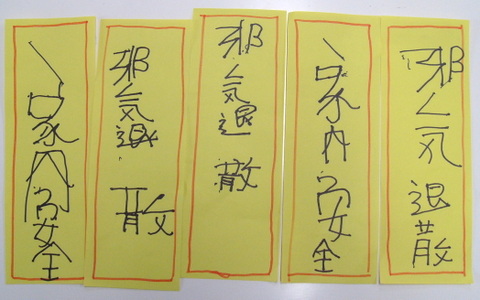 邪気退散
家内安全
邪気退散
邪気退散
家内安全